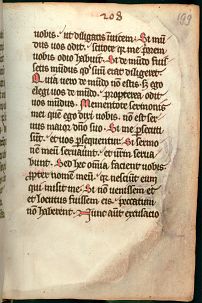 208
199
uobis · ut diligatis inuicem · Si mūdus uos odit · scitote qr me p̄rem
uobis odio habuit · Si de mūdo fuissetis mūdus qd suū erat diligeret
Quia uero de mūdo nō estis · sꝫ ego
elegi uos de mūdo · propterea odit
uos mūdus · Mementote sermonis
mei quē ego dixi uobis · nō est seruus maior dn̄o suo · Si me ꝑsecuti
sūt · et uos ꝑsequentur · Si sermonē meū seruauerūt · et ur̄m seruabunt · Sed hec omīa facient uobis
ꝓpter nomē meū · qr nesciūt eum
qui misit me · Si nō uenissem et
et locutus fuissem eis · peccatum
nō haberent · Nunc aūt excusacio